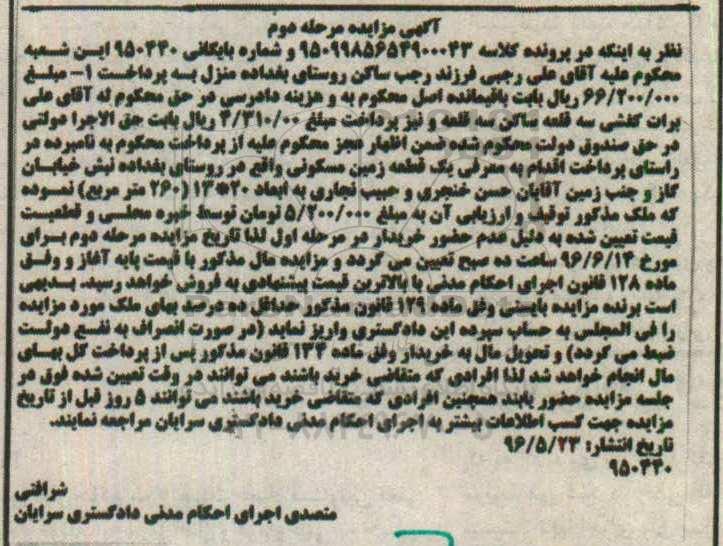 آگهی مزایده مرحله دوم
نظر به اینکه در پرونده کلاسه ۹۵۰۹۹۸۵۶۵۴۹۰۰۰۴۳ و شماره بایگانی ۹۵۰۴۴۰ این شعبه
محکوم علیه آقای علی رجبی فرزند رجب ساکن روستای بغداده منزل به پرداخت ۱- مبلغ
۶۶/۲۰۰/۰۰۰ ریال بابت باقیمانده اصل محکوم به و هزینه دادرسی در حق محکوم له آقای علی
برات کفشی سه قلعه ساکن سه قلعه و نیز پرداخت مبلغ ۴/۳۱۰/۰۰ ریال بابت حق الاجرا دولتی
در حق صندوق دولت محکوم شده ضمن اظهار عجز محکوم علیه از پرداخت محکوم به نامبرده در
راستای پرداخت اقدام به معرفی یک قطعه زمین مسکونی واقع در روستای بغداده نبش خیابان
گاز و جنب زمین آقایان حسن خنجری و حبیب نجاری به ابعاد ۲۰*۱۳ (۲۶۰ متر مربع) نموده
که ملک مذکور توقیف و ارزیابی آن به مبلغ ۵/۲۰۰/۰۰۰ تومان توسط خبره محلی و قطعیت
قیمت تعیین شده به دلیل عدم حضور خریدار در مرحله اول لذا تاریخ مزایده مرحله دوم برای
مورخ ۹۶/۶/۱۴ ساعت ده صبح تعیین می گردد و مزایده مال مذکور با قیمت پایه آغاز و وفق
ماده ۱۲۸ قانون اجرای احکام مدنی با بالاترین قیمت پیشنهادی به فروش خواهد رسید. بدیهی
است برنده مزایده بایستی وفق ماده ۱۲۹ قانون مذکور حداقل ده درصد بهای ملک مورد مزایده
را فی المجلس به حساب سپرده این دادگستری واریز نماید (در صورت انصراف به نفع دولت
ضبط می گردد) و تحویل مال به خریدار وفق ماده ۱۳۴ قانون مذکور پس از پرداخت کل بهای
مال انجام خواهد شد لذا افرادی که متقاضی خرید باشند می توانند در وقت تعیین شده فوق در
جلسه مزایده حضور یابند همچنین افرادی که متقاضی خرید باشند می توانند ۵ روز قبل از تاریخ
مزایده جهت کسب اطلاعات بیشتر به اجرای احکام مدنی دادگستری سرایان مراجعه نمایند.
تاریخ انتشار: ۹۶/۵/۲۳
۹۵۰۴۴۰
شرافتی
متصدی اجرای احکام مدنی دادگستری سرایان